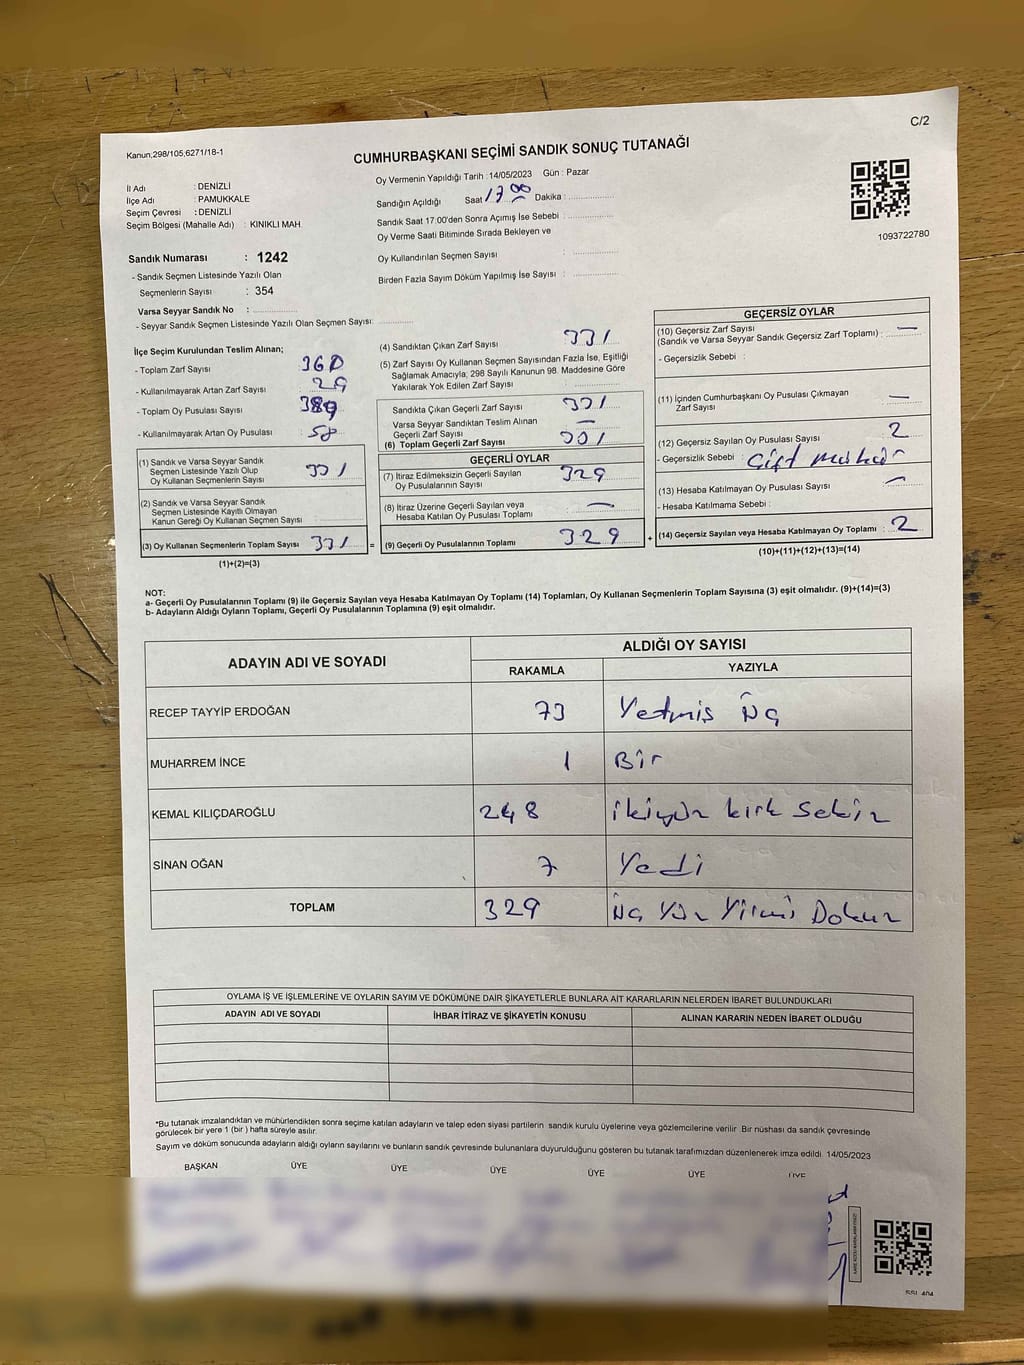 C/2
Kanun,298/105,6271/18-1
CUMHURBAŞKANI SEÇİMİ SANDIK SONUÇ TUTANAĞI
İl Adı : DENİZLİ
İlçe Adı : PAMUKKALE
Seçim Çevresi : DENİZLİ
Seçim Bölgesi (Mahalle Adı) : KINIKLI MAH
Sandık Numarası : 1242
- Sandık Seçmen Listesinde Yazılı Olan
Seçmenlerin Sayısı : 354
Varsa Seyyar Sandık No :
- Seyyar Sandık Seçmen Listesinde Yazılı Olan Seçmen Sayısı:
Oy Vermenin Yapıldığı Tarih : 14/05/2023 Gün : Pazar
Sandığın Açıldığı Saat 17.00 Dakika :
Sandık Saat 17.00'den Sonra Açımış İse Sebebi :
Oy Verme Saati Bitiminde Sırada Bekleyen ve
Oy Kullandırılan Seçmen Sayısı :
Birden Fazla Sayım Döküm Yapılmış İse Sayısı :
1093722780
İlçe Seçim Kurulundan Teslim Alınan;
- Toplam Zarf Sayısı : 360
- Kullanılmayarak Artan Zarf Sayısı : 29
- Toplam Oy Pusulası Sayısı : 389
- Kullanılmayarak Artan Oy Pusulası : 58
(1) Sandık ve Varsa Seyyar Sandık
Seçmen Listesinde Yazılı Olup
Oy Kullanan Seçmenlerin Sayısı : 331
(2) Sandık ve Varsa Seyyar Sandık
Seçmen Listesinde Kayıtlı Olmayan
Kanun Gereği Oy Kullanan Seçmen Sayısı :
(3) Oy Kullanan Seçmenlerin Toplam Sayısı : 331 =
(1)+(2)=(3)
(4) Sandıktan Çıkan Zarf Sayısı : 331
(5) Zarf Sayısı Oy Kullanan Seçmen Sayısından Fazla İse, Eşitliği
Sağlamak Amacıyla, 298 Sayılı Kanunun 98. Maddesine Göre
Yakılarak Yok Edilen Zarf Sayısı :
Sandıkta Çıkan Geçerli Zarf Sayısı : 331
Varsa Seyyar Sandıktan Teslim Alınan
Geçerli Zarf Sayısı : —
(6) Toplam Geçerli Zarf Sayısı : 331
GEÇERLİ OYLAR
(7) İtiraz Edilmeksizin Geçerli Sayılan
Oy Pusulalarının Sayısı : 329
(8) İtiraz Üzerine Geçerli Sayılan veya
Hesaba Katılan Oy Pusulası Toplamı : —
(9) Geçerli Oy Pusulalarının Toplamı : 329 +
GEÇERSİZ OYLAR
(10) Geçersiz Zarf Sayısı
(Sandık ve Varsa Seyyar Sandık Geçersiz Zarf Toplamı) : —
- Geçersizlik Sebebi :
(11) İçinden Cumhurbaşkanı Oy Pusulası Çıkmayan
Zarf Sayısı : —
(12) Geçersiz Sayılan Oy Pusulası Sayısı : 2
- Geçersizlik Sebebi : Çift mühür
(13) Hesaba Katılmayan Oy Pusulası Sayısı : —
- Hesaba Katılmama Sebebi :
(14) Geçersiz Sayılan veya Hesaba Katılmayan Oy Toplamı : 2
(10)+(11)+(12)+(13)=(14)
NOT:
a- Geçerli Oy Pusulalarının Toplamı (9) ile Geçersiz Sayılan veya Hesaba Katılmayan Oy Toplamı (14) Toplamları, Oy Kullanan Seçmenlerin Toplam Sayısına (3) eşit olmalıdır. (9)+(14)=(3)
b- Adayların Aldığı Oyların Toplamı, Geçerli Oy Pusulalarının Toplamına (9) eşit olmalıdır.
ADAYIN ADI VE SOYADI ALDIĞI OY SAYISI
RAKAMLA YAZIYLA
RECEP TAYYİP ERDOĞAN 73 Yetmiş üç
MUHARREM İNCE 1 Bir
KEMAL KILIÇDAROĞLU 248 ikiyüz kırk sekiz
SİNAN OĞAN 7 Yedi
TOPLAM 329 üç Yüz Yirmi Dokuz
OYLAMA İŞ VE İŞLEMLERİNE VE OYLARIN SAYIM VE DÖKÜMÜNE DAİR ŞİKAYETLERLE BUNLARA AİT KARARLARIN NELERDEN İBARET BULUNDUKLARI
ADAYIN ADI VE SOYADI İHBAR İTİRAZ VE ŞİKAYETİN KONUSU ALINAN KARARIN NEDEN İBARET OLDUĞU
*Bu tutanak imzalandıktan ve mühürlendikten sonra seçime katılan adayların ve talep eden siyasi partilerin sandık kurulu üyelerine veya gözlemcilerine verilir. Bir nüshası da sandık çevresinde
görülecek bir yere 1 (bir ) hafta süreyle asılır.
Sayım ve döküm sonucunda adayların aldığı oyların sayılarını ve bunların sandık çevresinde bulunanlara duyurulduğunu gösteren bu tutanak tarafımızdan düzenlenerek imza edildi. 14/05/2023
BAŞKAN ÜYE ÜYE ÜYE ÜYE ÜYE ÜYE